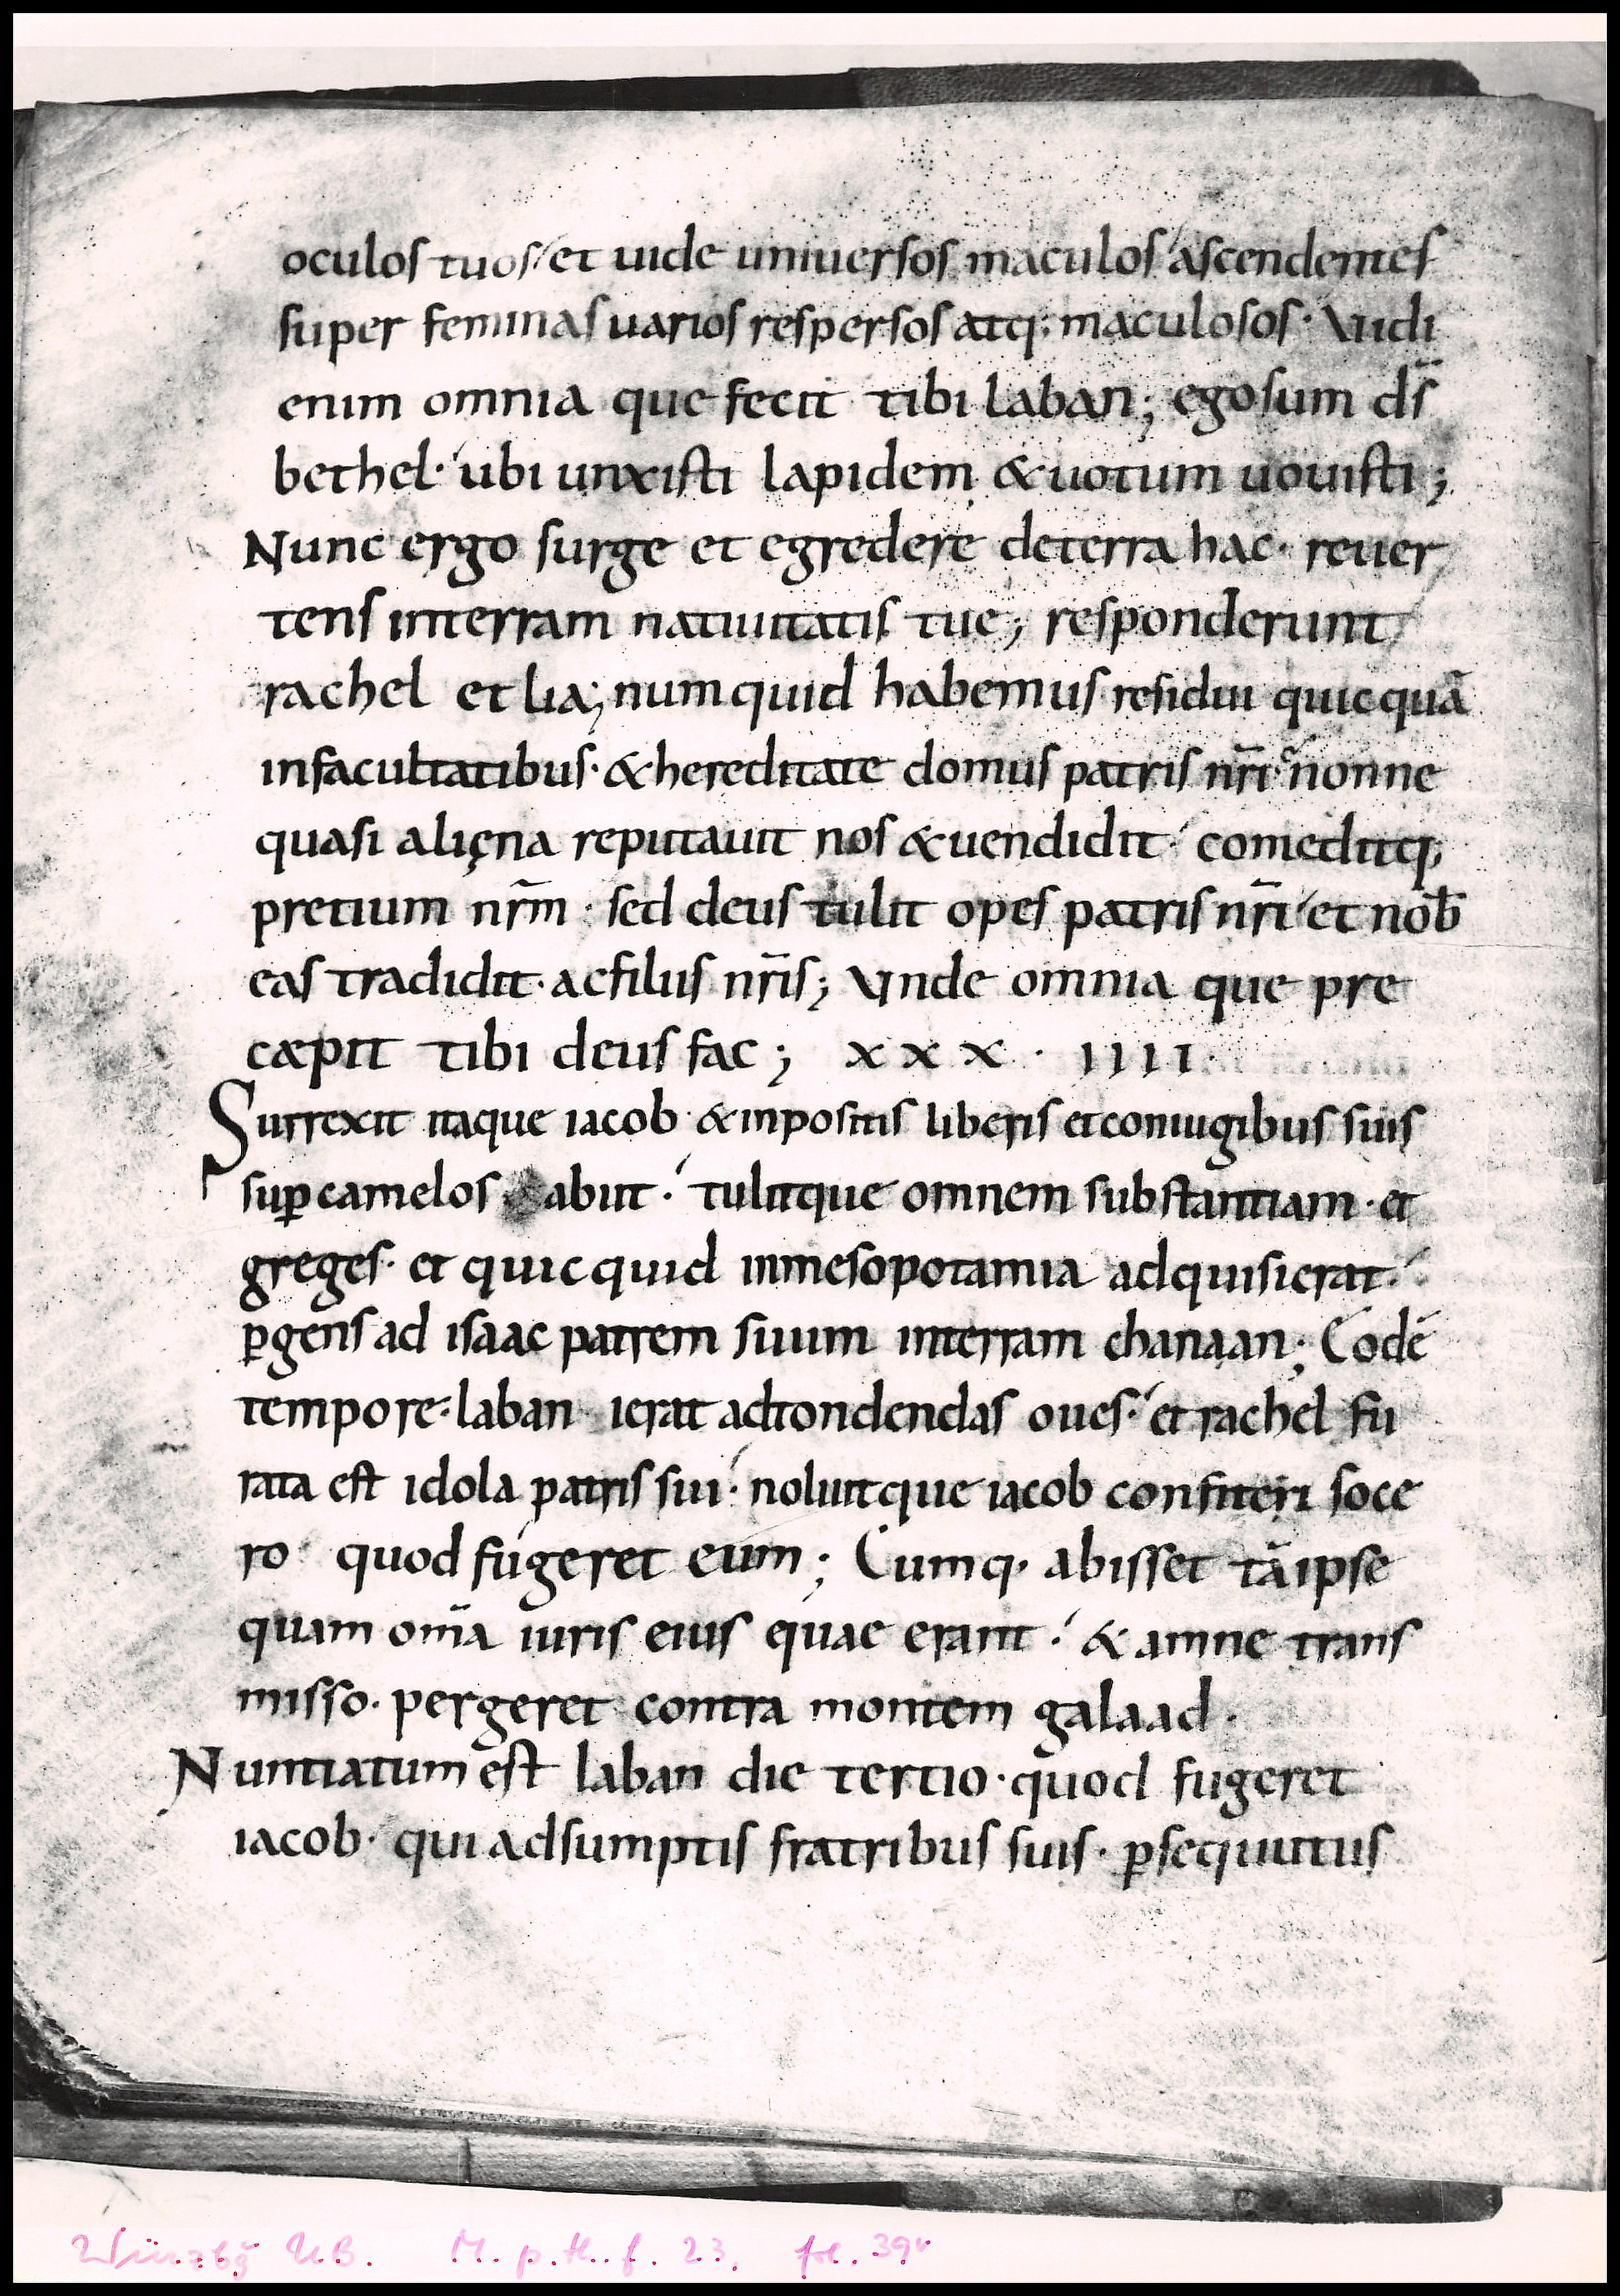 oculos tuos· et uide uniuersos maculos ascendentes
super feminas uarios respersos atq; maculosos· Vidi
enim omnia que fecit tibi laban; ego sum ds̄
bethel· ubi unxisti lapidem & uotum uouisti;
Nunc ergo surge et egredere deterra hac· reuer
tens interram natiuitatis tue; responderunt
rachel et lia; numquid habemus residui quicquā
infacultatibus· & hereditate domus patris nr̄i· nonne
quasi aliena reputauit nos & uendidit· comeditq;
pretium nr̄m· sed deus tulit opes patris nr̄i· et nob̄
eas tradidit· acfiliis nr̄is; Vnde omnia que pre
cæpit tibi deus fac; xxx· iiii·
Surrexit itaque iacob· & inpositis liberis et coniugibus suis
suꝑ camelos abiit· tulitque omnem substantiam· et
greges· et quicquid inmesopotamia adquisierat·
ꝑgens ad isaac patrem suum interram chanaan; Eodē
tempore· laban ierat adtondendas oues· et rachel fu
rata est idola patris sui· noluitque iacob confiteri soce
ro quod fugeret eum; Cumq· abisset tā ipse
quam om̄a iuris eius quae erant· & amne trans
misso· pergeret contra montem galaad·
Nuntiatum est laban die tertio· quod fugeret
iacob· qui adsumptis fratribus suis· ꝑsequutus
Würzbg UB. M. p. th. f. 23, fol. 39v